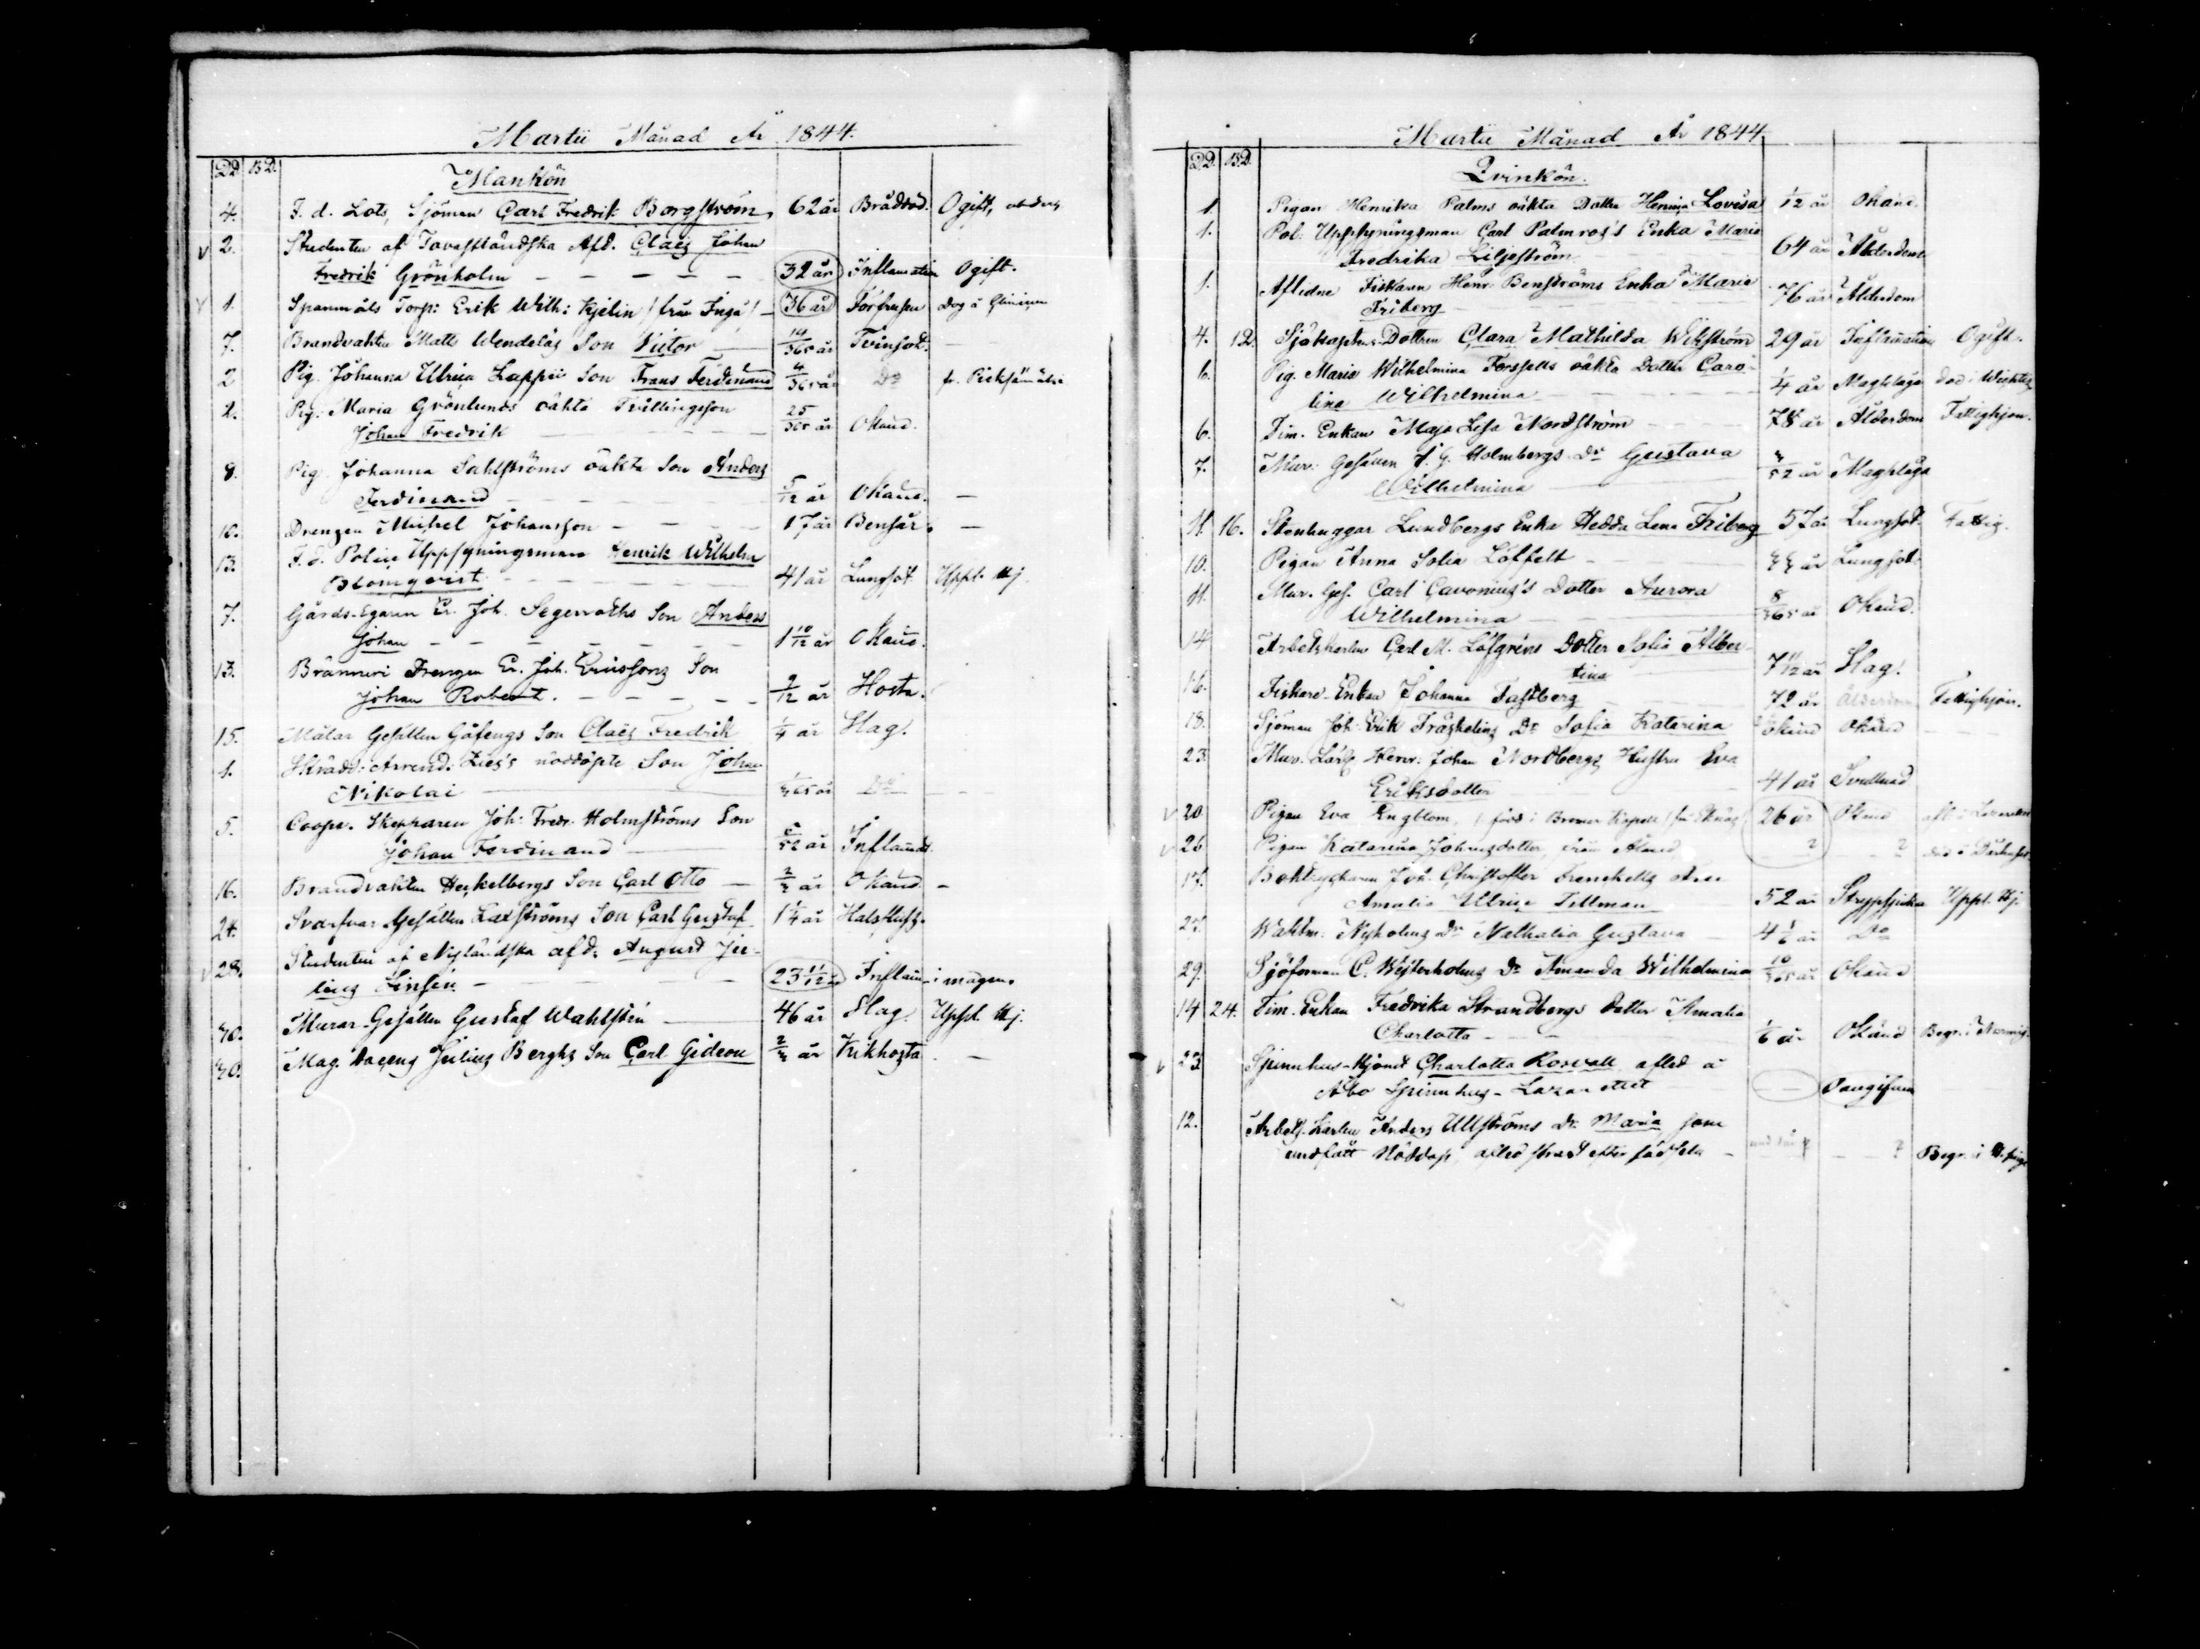 Martii Månad År 1844.
DD. BD.
Mankön
4. F. d. Lots, Sjöman Carl Fredrik Borgström, 62 år Bråddöd. Ogift,
2. Studenten af Tavastländska Afd. Claës Johan
Fredrik Grönholm 32 år Inflamation Ogift.
1. Spanmåls Torp: Erik Wilh: Kjelin (från Ingå) 36 år Förfrusen
7. Brandvakten Matts Wendeläs Son Victor 14/365 år Tvinsot.
2 Pig. Johanna Ulrica Lappis Son Frans Ferdinand 4/365 år Do
2. Pig. Maria Grönlunds oäkta Tvillingsson
Johan Fredrik 25/365 år Okänd.
8. Pig. Johanna Sahlströms oäkta Son Anders
Ferdinand 5/12 år Okänd.
10. Drengen Michel Johansson 17 år Bensår.
13. F. d. Police Uppsyningsman Henrik Wilhelm
Blomqvist 41 år Lungsot Uppl. Kj.
7. Gårds-Egaren Er. Joh. Segervaths Son Anders
Johan 1 10/12 år Okänd.
13. Bränneri Drengen Er. Joh. Ericssons Son
Johan Robert. 9/12 år Hosta.
15. Målar Gesällen Gåfengs Son Claës Fredrik 1/4 år Slag.
1. Skrädd: Arrend. Lies's nöddöpte Son Johan
Nikolai 1/365 år Do
5. Coopv. Skepparen Joh: Fredr. Holmströms Son
Johan Ferdinand /52 år Inflamat.
16. Brandvakten Heckelbergs Son Carl Otto år Okänd
24. Svarfvar Gesällen Laxströms Son Carl Gustaf 1 1/4 år Halsfluss.
28. Studenten af Nyländska afd. August Ju-
lius Linsén 23 11/12 Inflam. i magen.
30. Murar-Gesällen Gustaf Wahlstén 46 år Slag. Uppl. Kj.
30. Mag. Docens Julius Berghs Son Carl Gideon år Kikhosta
Martii Månad År 1844.
DD. BD.
Qvinkön.
1. Pigan Henrika Palms oäkta Dotter Henrica Lovisa 1/12 år Okänd.
1. Pol. Uppsyningsman Carl Palmros's Enka Maria
Fredrika Liljeström 64 år Ålderdom
1. Aflidne Fiskaren Henr. Benströms Enka Maria
Friberg 76 år Ålderdom
4. 12. Sjökapten-Dottren Clara Mathilda Wikström 29 år Inflamation Ogift.
6. Pig. Maria Wilhelmina Forssells oäkta Dotter Caro-
lina Wilhelmina 1/4 år Magplåga död i Wichtis
6. Tim. Enkan Maja Lisa Nordström 78 år Ålderdom Fattighjon.
7. Mur. Gesällen J. G. Holmbergs Dr Gustava
Wilhelmina /52 år Magplåga
11. 16. Stenhuggar Lundbergs Enka Hedda Lena Friberg 57 år Lungsot. Fattig.
10. Pigan Anna Sofia Löffelt år Lungsot.
11. Mur. Ges. Carl Cavonius's Dotter Aurora
Wilhelmina 8/365 år Okänd.
14 Arbetskarlen Carl M. Löfgréns Dotter Sofia Alber-
tina 7 11/12 år Slag.
16. Fiskare-Enkan Johanna Fastberg 72 år Ålderdom Fattighjon.
18. Sjöman Joh. Erik Träskelins Dr Sofia Katarina okänd Okänd
23. Mur. Lärl. Henr. Johan Nordbergs Hustru Eva
Eriksdotter 41 år
20. Pigan Eva Engblom, (född i Bromar Kapell) 26 år Okänd
26 Pigan Katarina Johansdotter, från Åland ? ?
17. Boktryckaren Joh. Christoffer Frenckells
Amalia Ulrica Tillman 52 år Strypsjuka Uppl. Kj.
27. Waktm: Nyholms Dr Nathalia Gustava 4 1/6 år Do
29. Sjöforman C. Westerholms Dr Amanda Wilhelmina 10/365 år Okänd
14 24. Tim. Enkan Fredrika Strandbergs Dotter Amalia
Charlotta 1/6 år Okänd Begr. i
23 Spinnhus-Hjonet Charlotta Rosvall afled å
Åbo Spinnhus-Lazarettet Oangifven
12. Arbets-Karlen Anders Ullströms Dr Maria som
undfått Nöddop, afled strax efter födseln ? Begr. i